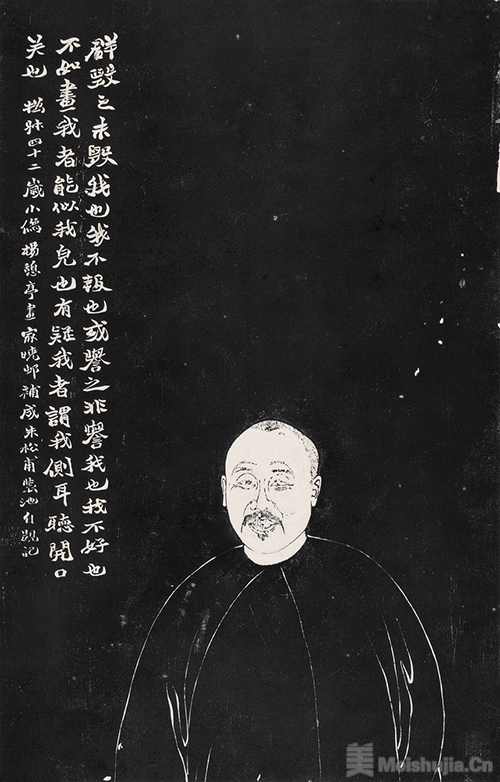 群毀之未毀我也我不報也或譽之非譽我也我不好也
不如畫我者能似我皃也有疑我者謂我側耳聽開口
笑也 松脁四十二歲小像 楊憩亭畫 家曉邨補成 朱松甫張池有觀記
美 Meishujia.Cn